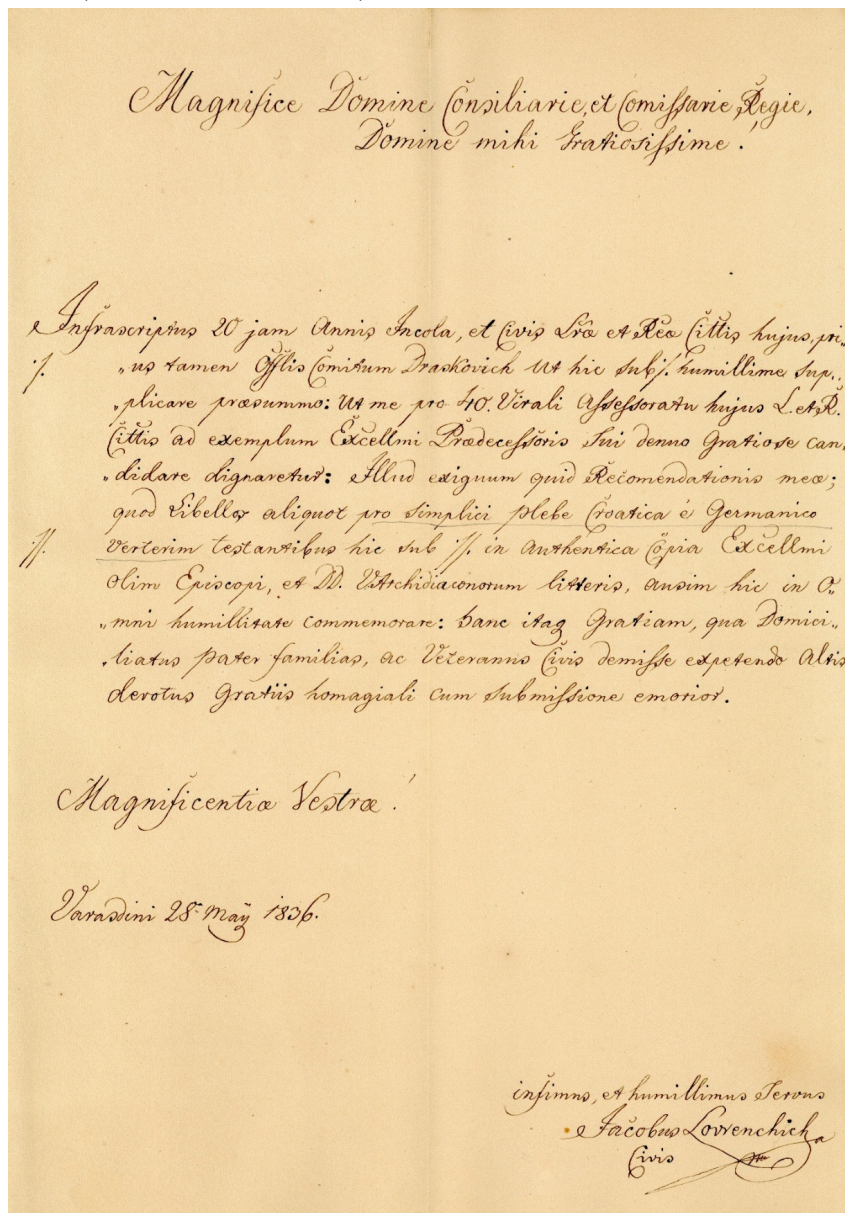 Magnifice Domine Consiliarie, et Comissarie Regie,
Domine mihi Gratiosissime!
Infrascriptus 20 jam Annis Incola, et Civis Lræ et Reæ Cittis hujus, pri„
·/. „us tamen Offlis Comitum Draskovich ut hic sub ·/. humillime sup„
„plicare præsummo: ut me pro 40. Virali Assessoratu hujus L. et R.
Cittis ad exemplum Excellmi Prædecessoris sui denuo Gratiose can„
„didare dignaretur: Illud exiguum quid Recomendationis meæ;
quod Libellos aliquot pro simplici plebe Croatica è Germanico
·//. verterim testantibus hic sub ·//. in Authentica Copia Excellmi
olim Episcopi, et DD. VArchidiaconorum litteris, ausim hic in O„
„mni humillitate commemorare: hanc itaq Gratiam, qua Domici„
„liatus pater familias, ac Veteranus Civis demisse expetendo Altis
devotus Gratiis homagiali cum submissione emorior.
Magnificentiæ Vestræ!
Varasdini 28a May 1836.
infimus, et humillimus Servus
Jacobus Lovrenchich
Civis